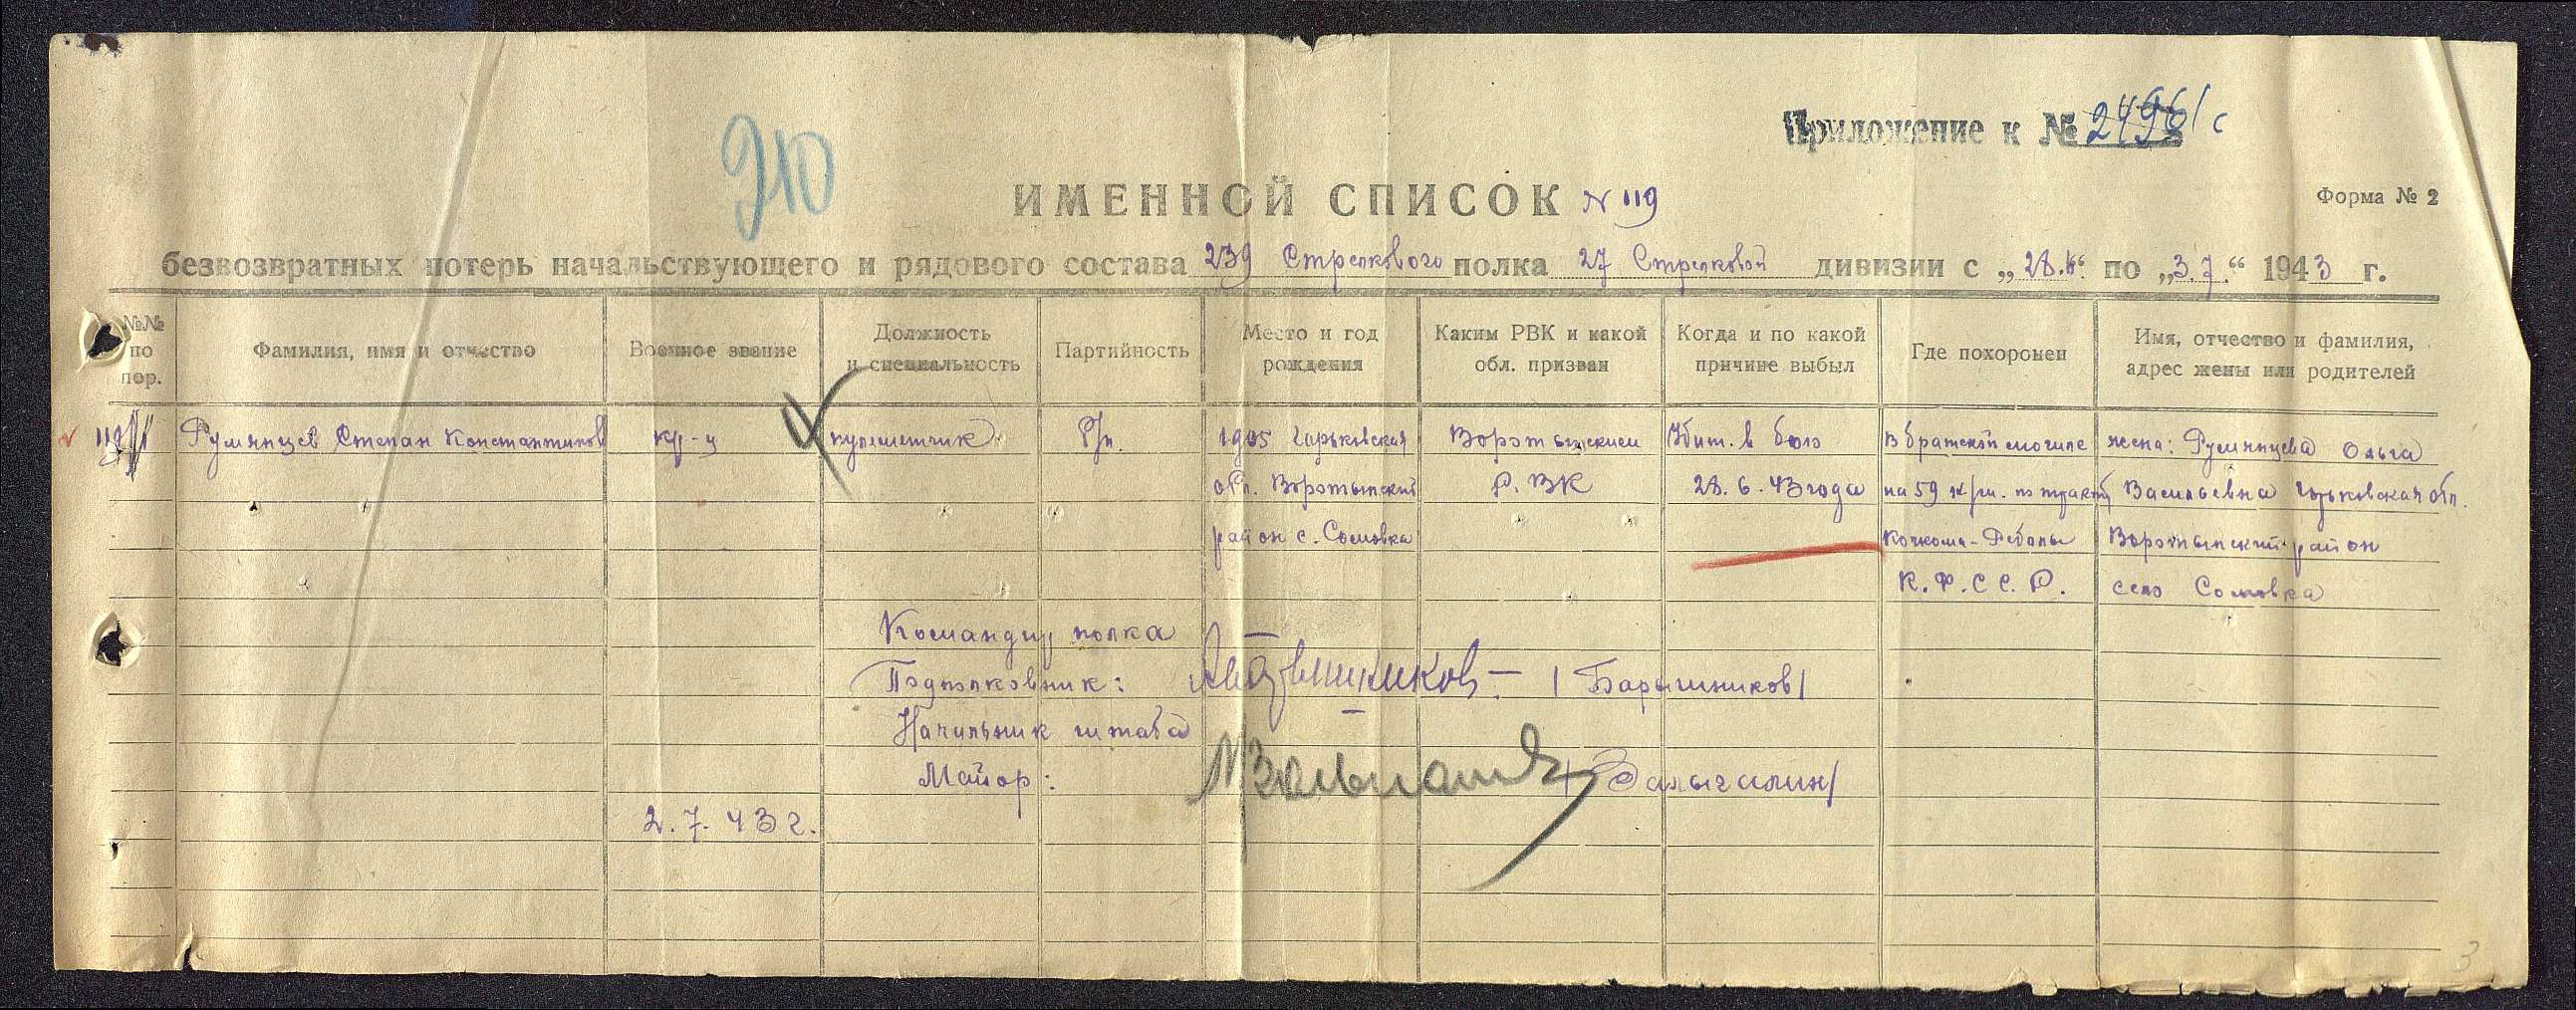 210
Приложение к № 2496/с
ИМЕННОЙ СПИСОК N 119
Форма № 2
безвозвратных потерь начальствующего и рядового состава 239 Стрелкового полка 27 Стрелковой дивизии с „28.6“ по „3.7.“ 1943 г.
№№ по пор.
Фамилия, имя и отчество
Военное звание
Должность и специальность
Партийность
Место и год рождения
Каким РВК и какой обл. призван
Когда и по какой причине выбыл
Где похоронен
Имя, отчество и фамилия, адрес жены или родителей
119 Румянцев Степан Константинов кр-ц пулеметчик Б/п. 1905 Горьковская Воротынским Убит. в бою В братской могиле жена: Румянцева Ольга
обл. Воротынский Р.ВК 28.6.43 года на 59 к/м. по тракту Васильевна Горьковская обл.
район с. Сомовка Кочкома-Реболы Воротынский район
К.Ф.С С.Р. село Сомовка
Командир полка
Подполковник: /Барышников/
Начальник штаба
Майор:
2.7.43 г.
3